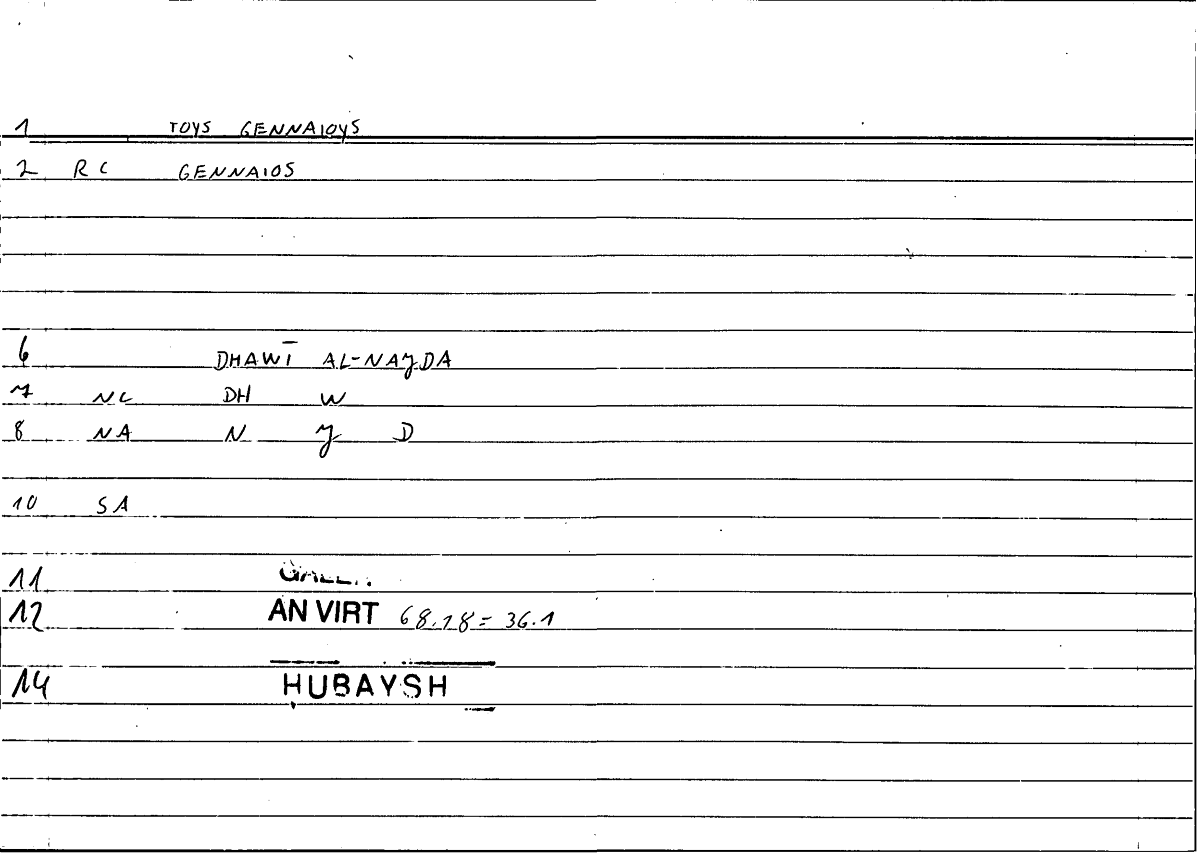 1 TOYS GENNAIOYS
2 RC GENNAIOS
6 DHAWĪ AL-NAJDA
7 NC DH W
8 NA N J D
10 SA
11
12 AN VIRT 68.18= 36.1
14 HUBAYSH